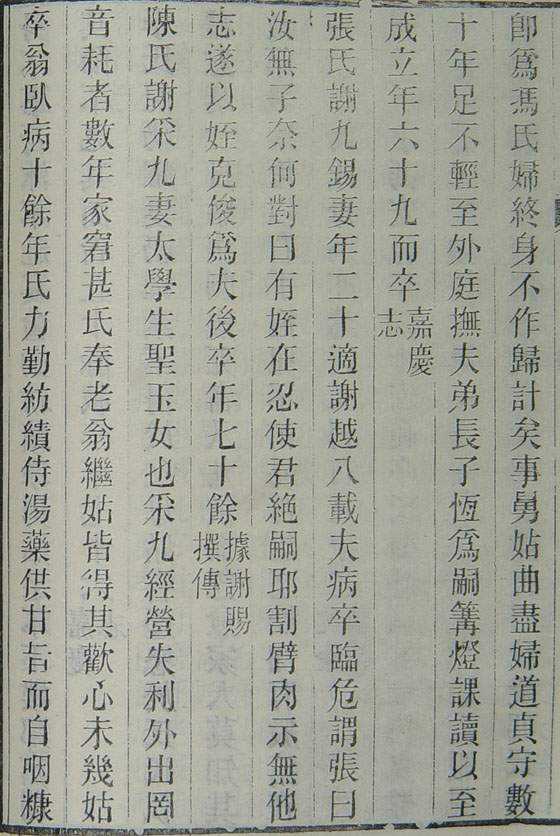 卽爲馮氏婦終身不作歸計矣事舅姑曲盡婦道貞守數
十年足不輕至外庭撫夫弟長子恆爲嗣篝燈課讀以至
成立年六十九而卒嘉慶志
張氏謝九錫妻年二十適謝越八載夫病卒臨危謂張曰
汝無子奈何對曰有姪在忍使君絕嗣耶割臂肉示無他
志遂以姪克俊爲夫後卒年七十餘據謝賜撰傳
陳氏謝采九妻太學生聖玉女也采九經營失利外出罔
音耗者數年家窘甚氏奉老翁繼姑皆得其歡心未幾姑
卒翁臥病十餘年氏力勤紡績侍湯藥供甘旨而自咽糠